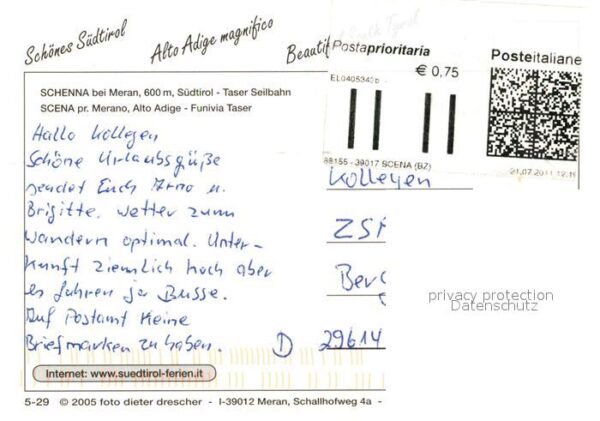 Schönes Südtirol
Alto Adige magnifico
Beautiful South Tyrol
Postaprioritaria
Posteitaliane
€ 0,75
EL0405340b
88155 - 39017 SCENA (BZ)
21.07.2011 12.19
SCHENNA bei Meran, 600 m, Südtirol - Taser Seilbahn
SCENA pr. Merano, Alto Adige - Funivia Taser
Hallo Kollegen
Schöne Urlaubsgüße
sendet Euch Arno u.
Brigitte. Wetter zum
Wandern optimal. Unter-
kunft ziemlich hoch aber
es fahren ja Busse.
Auf Postamt Keine
Briefmarken zu haben.
Kollegen
Ber
D 29614
privacy protection
Datenschutz
Internet: www.suedtirol-ferien.it
5-29 © 2005 foto dieter drescher - I-39012 Meran, Schallhofweg 4a -